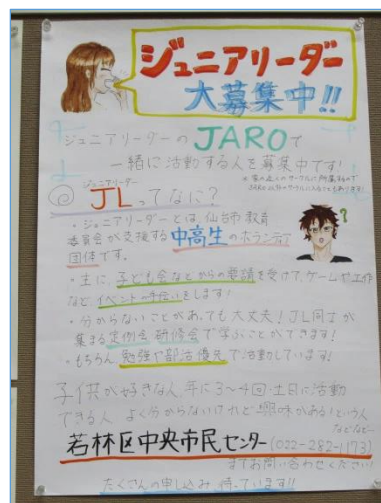 ジュニアリーダー
大募集中!!
ジュニアリーダーの JAROで
一緒に活動する人を募集中です!
ジュニアリーダー
JLってなに?
・ジュニアリーダーとは、仙台市教育
委員会が支援する中高生のボランティア
団体です。
?
・主に、子ども会などからの要請を受けて、ゲームや工作
など イベントの手伝いをします!
・分からないことがあっても大丈夫! JL同士が
集まる定例会 研修会で学ぶことができます!
・もちろん、勉強や部活優先で活動しています!
子供が好きな人、年に3~4回・土日に活動
できる人 よく分からないけれど興味がある!という人
などなど…
若林区中央市民センター(022-282-1173)
までお問い合わせください!
たくさんの申し込み、待っています!!